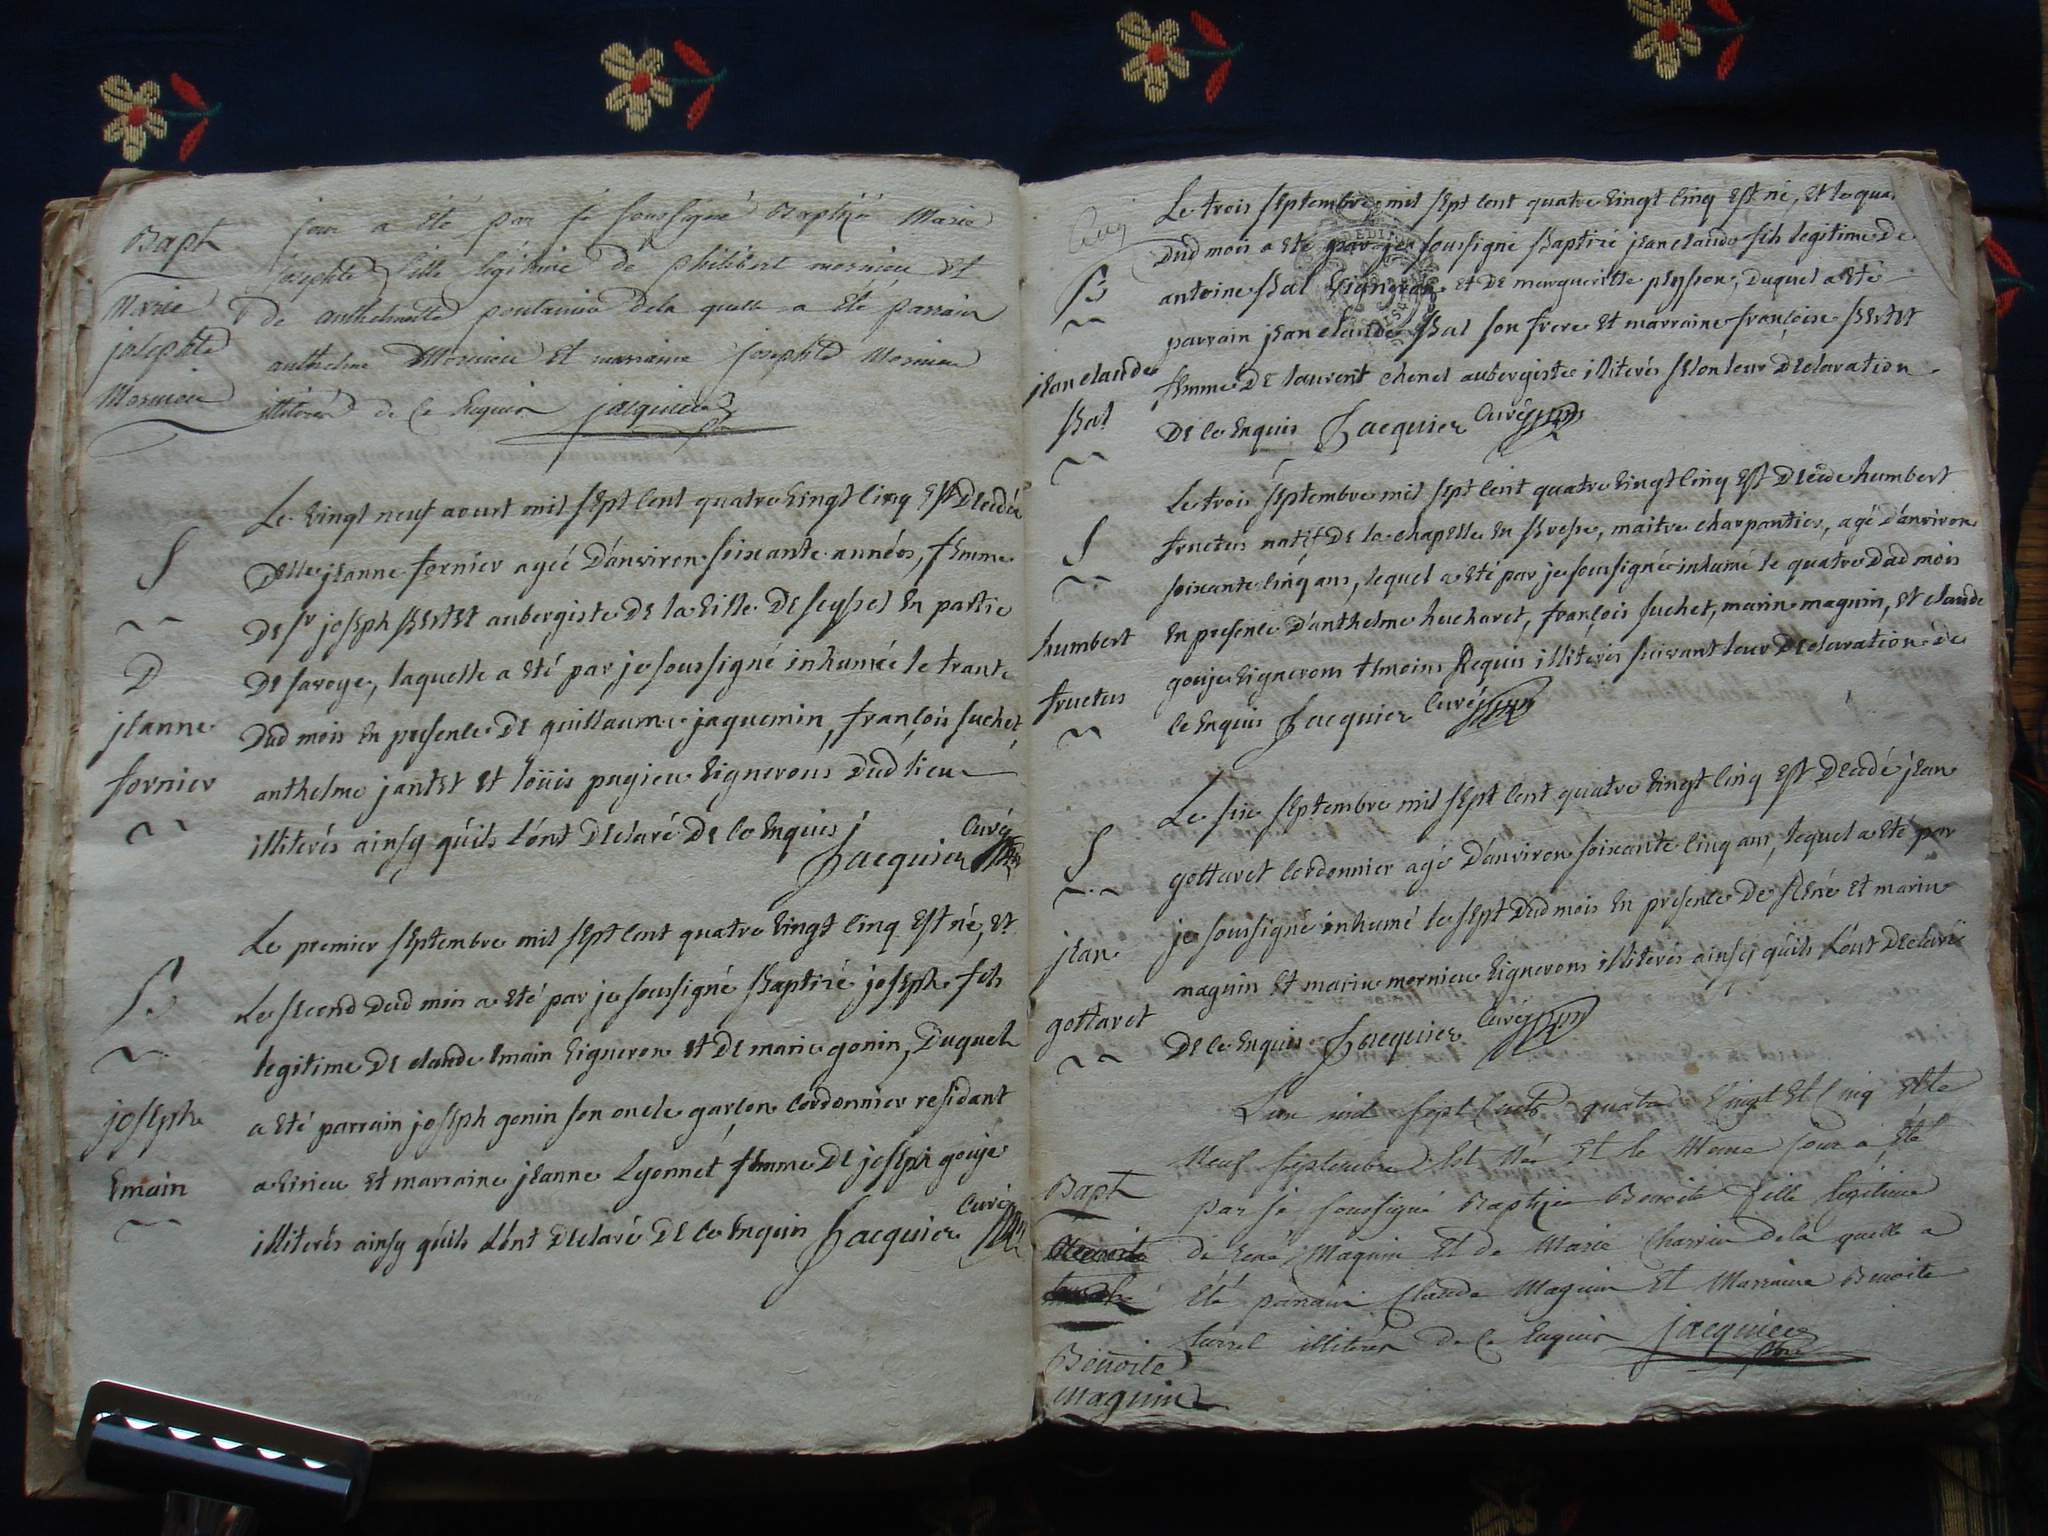 Bapt
Marie
joséphte
Mornieu
jour a été par je soussigné Baptisée Marie
josephte fille légitime de philibert mornieu et
de anthelmette poulained de la quelle a été parrain
anthelme Mornieu et marraine josephte Mornieu
illiterés de ce Enquis jacquier
S
D
jeanne
fornier
Le vingt neuf aoust mil sept cent quatre vingt cinq est decedée
Delle jeanne fornier agée d'anviron soixante années, femme
De sr joseph Bertet aubergiste de la ville de seyssel en partie
De savoye, laquelle a eté par je soussigné inhumée le trante
Dud mois en presence de guillaume jaquemin, françois suchet,
anthelme jantet et loüis pugieu vignerons dud lieu
illiterés ainsy qu'ils l'ont declaré de ce enquis
Jacquier Curé
B
joseph
Emain
Le premier septembre mil sept cent quatre vingt cinq est né, et
Le second dud mois a eté par je soussigné Baptizé joseph fils
legitime de claude Emain vigneron et de marie gonin, Duquel
a eté parrain joseph gonin son oncle garçon cordonnier residant
a virieu et marraine jeanne Lyonnet femme de joseph gouje
illiterés ainsy qu'ils l'ont declaré de ce enquis Jacquier Curé
B
jean claude
Bal
Le trois septembre mil sept cent quatre vingt cinq est né, et le qua
Dud mois a eté par je soussigné Baptizé jean claude fils legitime de
antoine Bal vigneron et de margueritte peysson, Duquel a eté
parrain jean claude Bal son frere et marraine françoise Bertet
femme de laurent chenel aubergiste illiterés selon leur declaration
De ce enquis Jacquier Curé
S
humbert
fructus
Le trois septembre mil sept cent quatre vingt cinq est decedé humbert
fructus natif de la chapelle en Bresse, maitre charpantier, agé d'anviron
soixante cinq ans, lequel a eté par je soussigné inhumé le quatre dud mois
en presence d'anthelme hucharet, françois suchet, marin maguin, et claude
gouje vignerons temoins Requis illiterés suivant leur declaration de
ce enquis Jacquier Curé
S
jean
gottaret
Le six septembre mil sept cent quatre vingt cinq est decedé jean
gottaret cordonnier agé d'anviron soixante cinq ans, lequel a eté par
je soussigné inhumé le sept dud mois en presence de René et marin
maguin et marin mornieu vignerons illiterés ainsy qu'ils l'ont declaré
De ce enquis Jacquier Curé
Bapt
Benoite
maguin
L'an mil sept cents quatre vingt et cinq et le
Neuf septembre est née et le même jour a été
par je soussigné Baptisée Benoite fille légitime
de René Maguin et de Marie Charvin de la quelle a
été parrain Claude Maguin et Marraine Benoite
turrel illiterés de ce Enquis jacquier